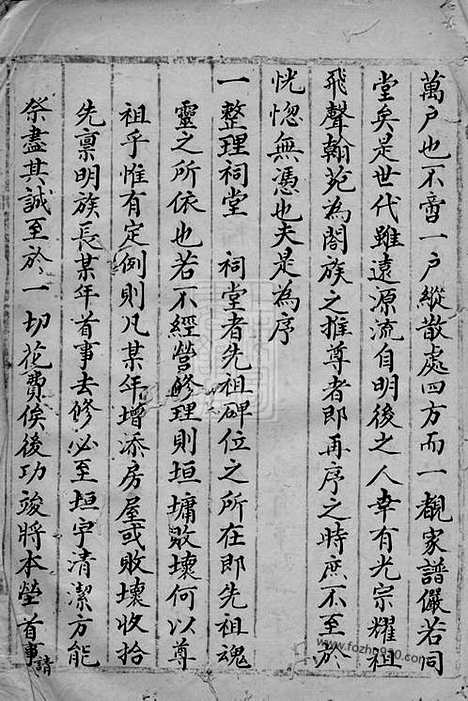 萬户也不啻一户縱散處四方而一覩家譜儼若同
堂矣是世代雖遠源流自明後之人幸有光宗耀祖
飛聲翰苑為閤族之推尊者即再序之時庶不至於
恍惚無憑也夫是為序
一整理祠堂 祠堂者先祖碑位之所在即先祖魂
靈之所依也若不經營修理則垣墉敗壞何以尊
祖乎惟有定例則凡某年增添房屋或敗壞收拾
先稟明族長某年首事去修必至垣宇清潔方能
祭盡其誠至於一切花費俟後功竣將本塋首事請
www.fozhu920.com